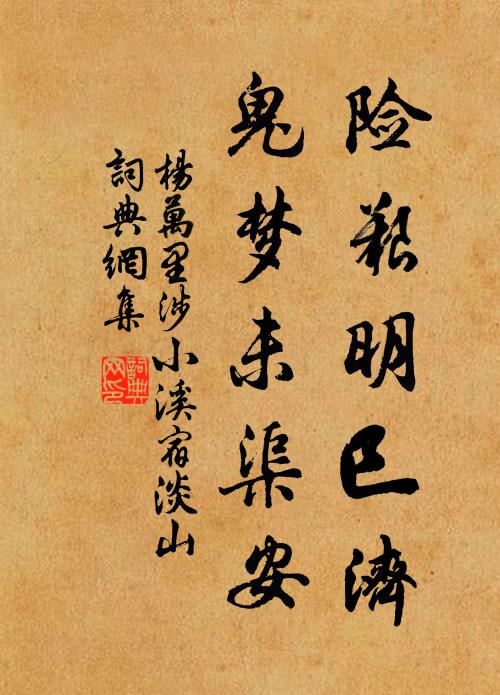 险艰明已濟
鬼梦未渠安
楊萬里涉小溪宿淡山
詞典網集
詞典網印